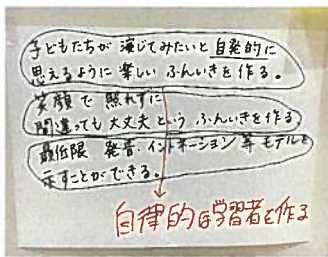 子どもたちが 演じてみたいと 自発的に
思えるように 楽しい ふんいきを 作る。
笑顔で 照れずに
間違っても大丈夫という ふんいきを作る
最低限 発音・イントネーション等 モデルを
示すことができる。
自律的な学習者を作る